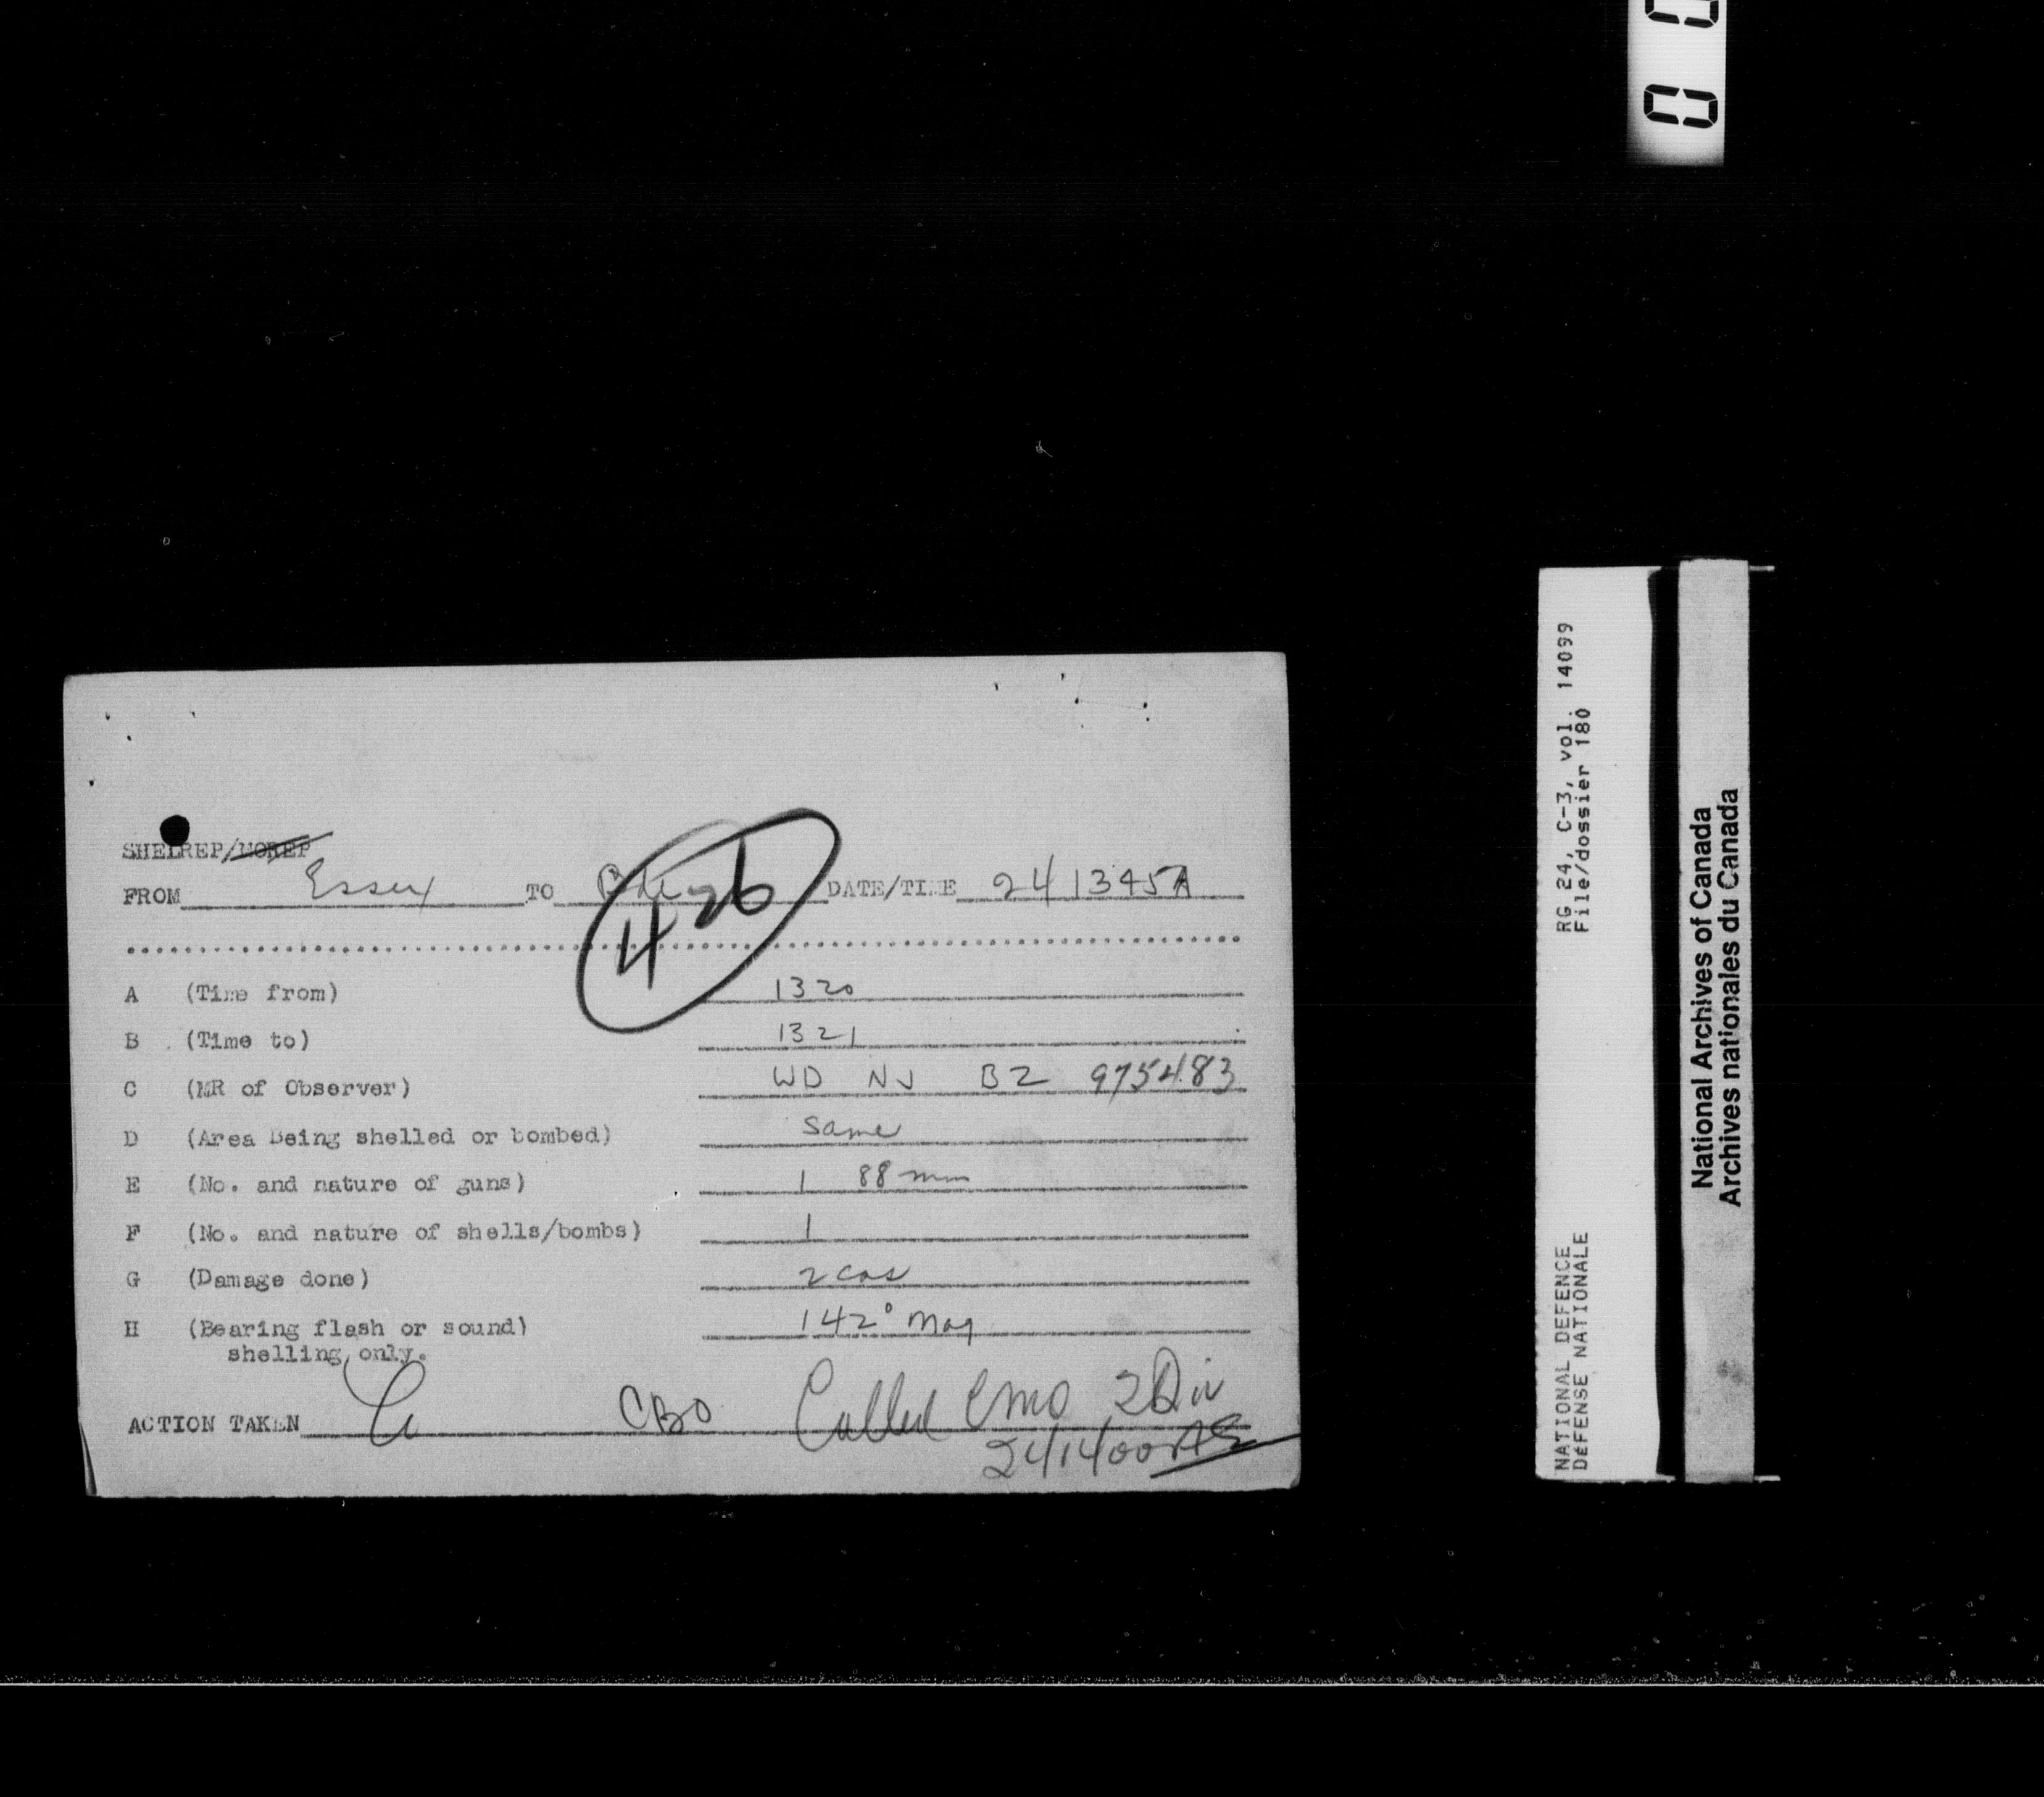 0 0
SHELREP/MOREP
FROM Essex TO Bde DATE/TIME 241345A
4 26
A (Time from) 1320
B (Time to) 1321
C (MR of Observer) WD NJ BZ 975483
D (Area Being shelled or bombed) Same
E (No. and nature of guns) 1 88 mm
F (No. and nature of shells/bombs) 1
G (Damage done) 2 cas
H (Bearing flash or sound) 142° Mag
shelling only.
ACTION TAKEN CBO Called CMO 2 Div
241400A
RG 24, C-3, vol. 14099
File/dossier 180
NATIONAL DEFENCE
DÉFENSE NATIONALE
National Archives of Canada
Archives nationales du Canada